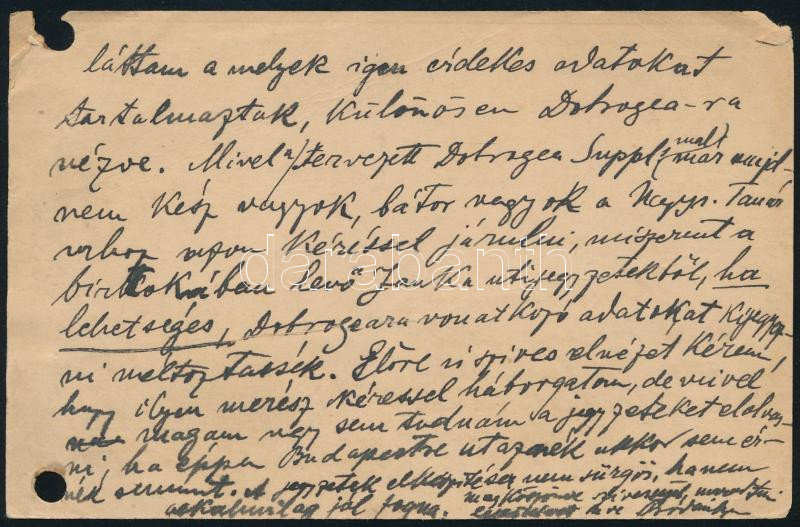 láttam a melyek igen érdekes adatokat
tartalmaztak, különösen Dobrogea-ra
nézve. Mivel a tervezett Dobrogea Suppl. már
nem kész vagyok, bátor vagyok a Nagys. Tanár
azon kéréssel járulni, miszerint a
birtokában levő Janka utijegyzetekből, ha
lehetséges, Dobrogeara vonatkozó adatokat kijegyez-
ni méltóztassék. Előre is szives elnézést kérem,
hogy ilyen merész kéréssel háborgatom, de mivel
magam ugy sem tudnám a jegyzeteket elolvas-
ni, ha éppen Budapestre utaznék akkor sem ér-
nék semmit. A jegyzetek elkészitése nem sürgős, hanem
jól fogna.
darabanth